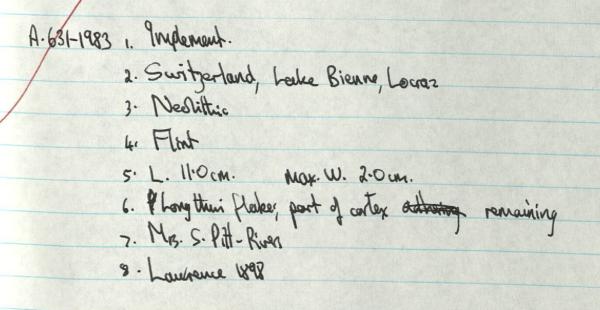 A.631-1983 1. Implement.
2. Switzerland, Lake Bienne, Locraz
3. Neolithic
4. Flint
5. L. 11.0cm. Max. W. 2.0cm.
6. Long thin flake, part of cortex remaining
7. Mrs. S. Pitt-Rivers
8. Lawrence 1898